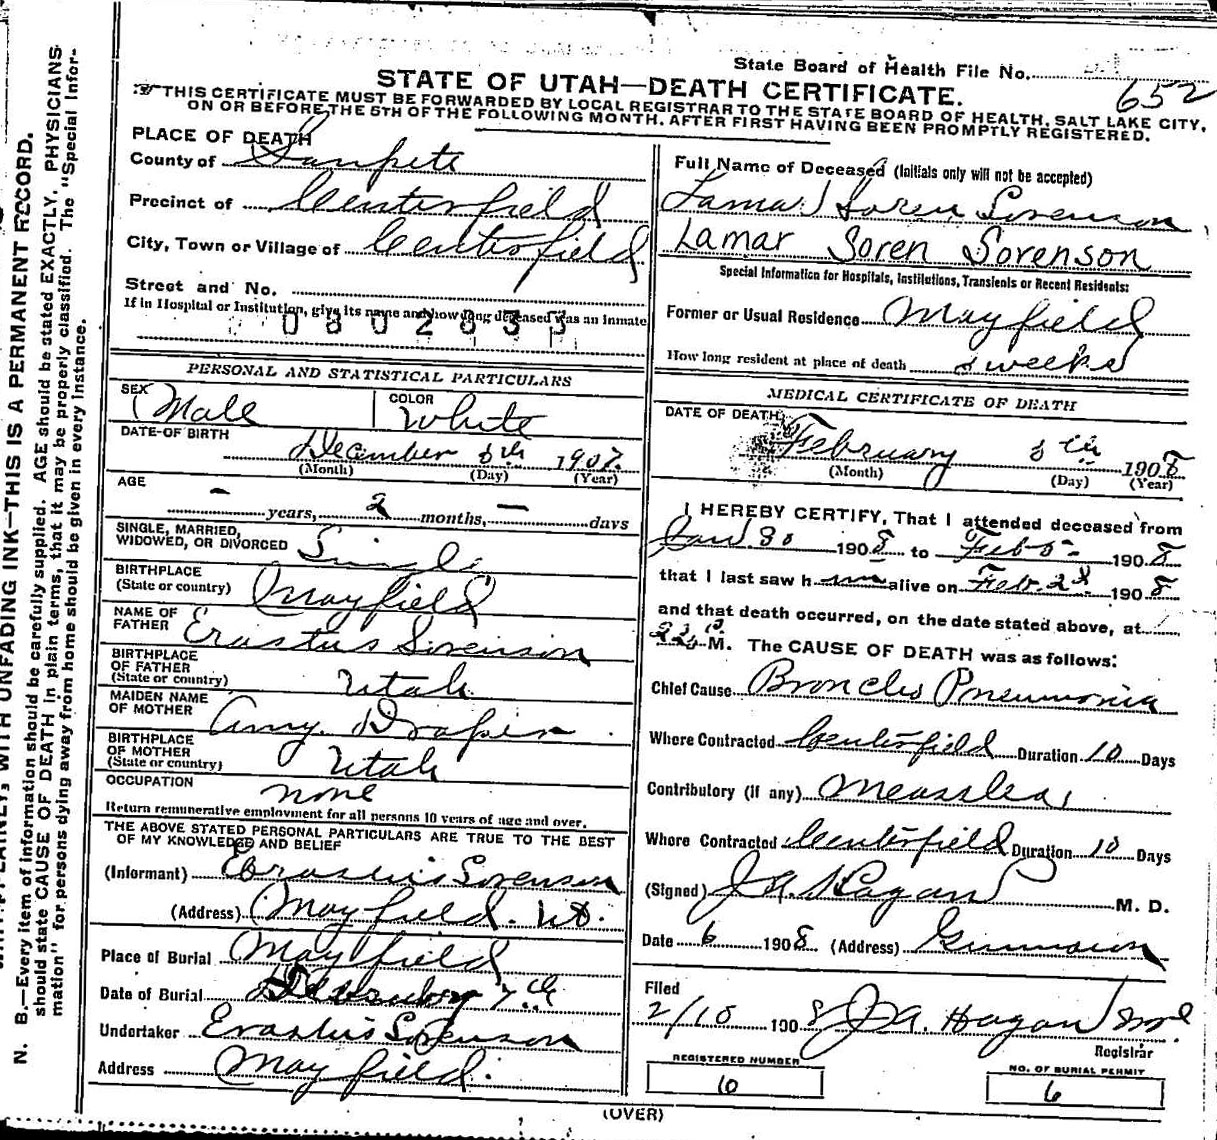 State Board of Health File No.
652
STATE OF UTAH—DEATH CERTIFICATE.
THIS CERTIFICATE MUST BE FORWARDED BY LOCAL REGISTRAR TO THE STATE BOARD OF HEALTH, SALT LAKE CITY,
ON OR BEFORE THE 5TH OF THE FOLLOWING MONTH. AFTER FIRST HAVING BEEN PROMPTLY REGISTERED.
N. B.—Every item of information should be carefully supplied. AGE should be stated EXACTLY. PHYSICIANS
should state CAUSE OF DEATH in plain terms, that it may be properly classified. The "Special Infor-
mation" for persons dying away from home should be given in every instance.
WITH UNFADING INK—THIS IS A PERMANENT RECORD.
PLACE OF DEATH
County of Sanpete
Precinct of Centerfield
City, Town or Village of Centerfield
Street and No.
If in Hospital or Institution, give its name and how long deceased was an inmate
PERSONAL AND STATISTICAL PARTICULARS
SEX Male COLOR White
DATE OF BIRTH December 5th 1907.
(Month) (Day) (Year)
AGE
- years, 2 months, - days
SINGLE, MARRIED,
WIDOWED, OR DIVORCED Single
BIRTHPLACE
(State or country) Mayfield
NAME OF
FATHER Erastus Sorenson
BIRTHPLACE
OF FATHER
(State or country) Utah
MAIDEN NAME
OF MOTHER Amy Draper
BIRTHPLACE
OF MOTHER
(State or country) Utah
OCCUPATION none
Return remunerative employment for all persons 10 years of age and over.
THE ABOVE STATED PERSONAL PARTICULARS ARE TRUE TO THE BEST
OF MY KNOWLEDGE AND BELIEF
(Informant) Erastus Sorenson
(Address) Mayfield. Ut.
Place of Burial Mayfield
Date of Burial 7th
Undertaker Erastus Sorenson
Address Mayfield.
Full Name of Deceased (Initials only will not be accepted)
Lamar Soren Sorenson
Lamar Soren Sorenson
Special Information for Hospitals, Institutions, Transients or Recent Residents:
Former or Usual Residence Mayfield
How long resident at place of death weeks
MEDICAL CERTIFICATE OF DEATH
DATE OF DEATH
February 5th 1908
(Month) (Day) (Year)
I HEREBY CERTIFY, That I attended deceased from
Jan 30 1908 to Feb 5 1908
that I last saw him alive on Feb. 2d 1908
and that death occurred, on the date stated above, at
M. The CAUSE OF DEATH was as follows:
Chief Cause Broncho Pneumonia
Where Contracted Centerfield Duration 10 Days
Contributory (if any) Meassles
Where Contracted Centerfield Duration 10 Days
(Signed) J.A. Hagan M. D.
Date 6 1908 (Address) Gunnison
Filed
2/10 1908 J.A. Hagan
Registrar
REGISTERED NUMBER
10
NO. OF BURIAL PERMIT
6
(OVER)